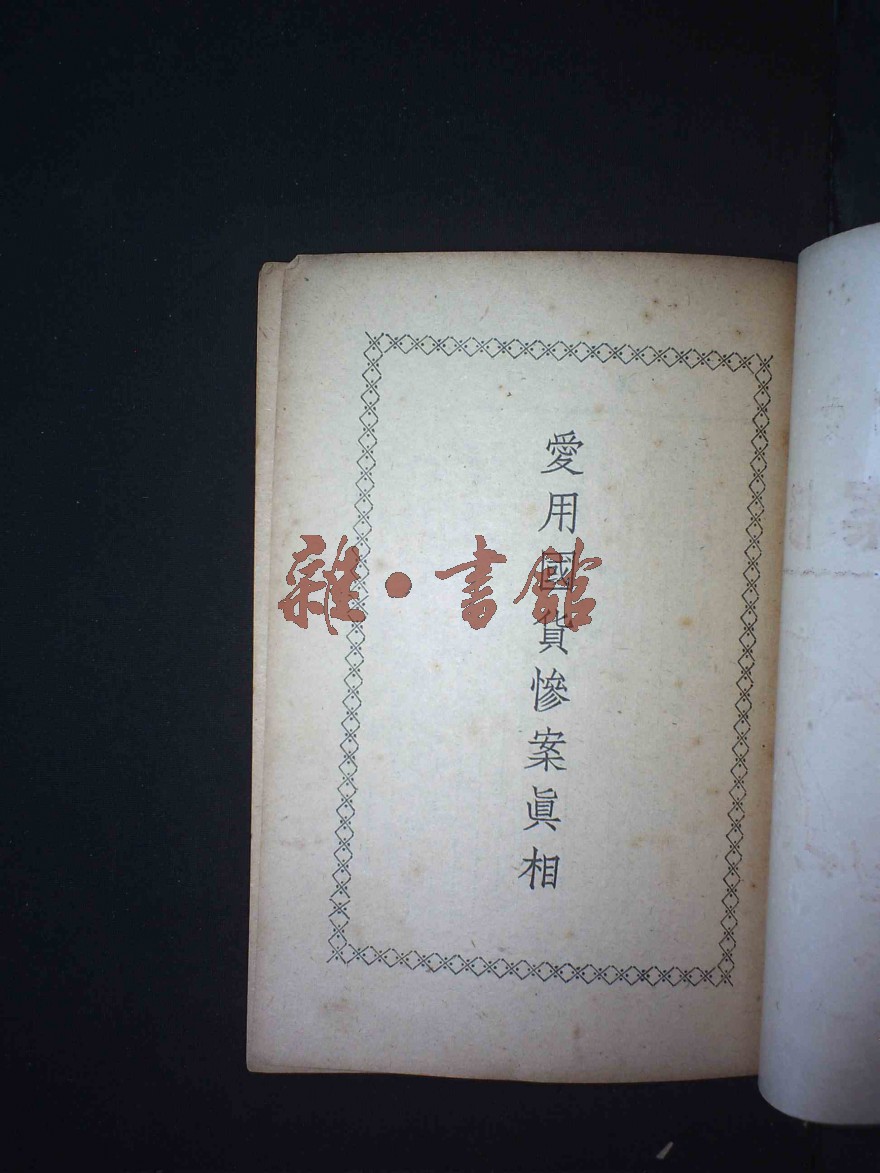 愛用國貨慘案眞相
雜·書館